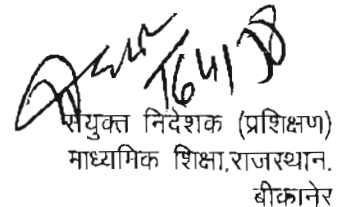 संयुक्त निदेशक (प्रशिक्षण)
माध्यमिक शिक्षा,राजस्थान.
बीकानेर